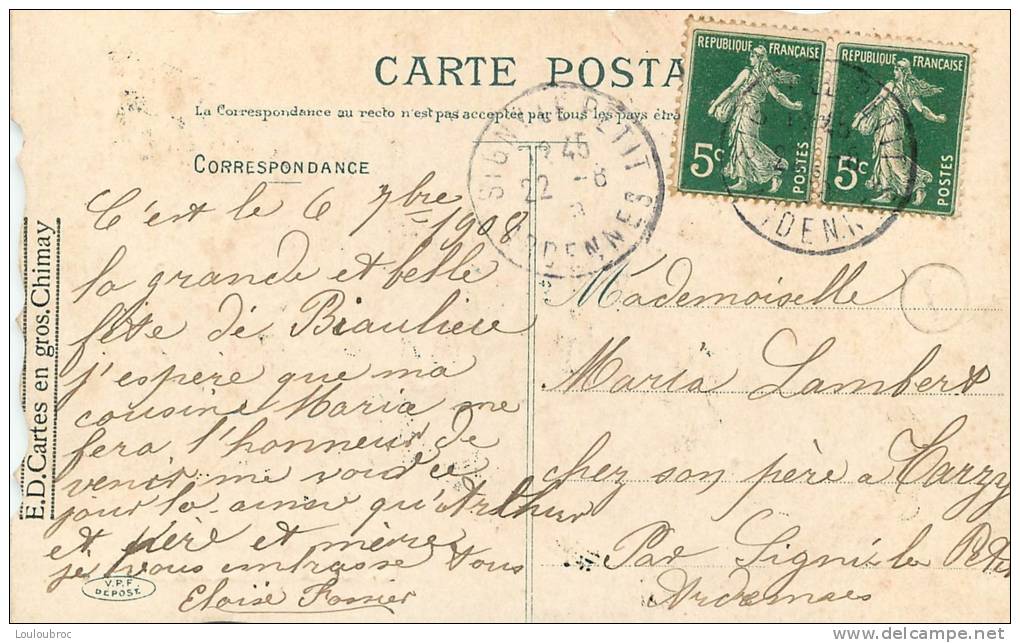 CARTE POSTA
La Correspondance au recto n'est pas acceptée par tous les pays étra
CORRESPONDANCE
RÉPUBLIQUE FRANÇAISE
5c
POSTES
RÉPUBLIQUE FRANÇAISE
5c
POSTES
SIGNY-LE-PETIT
45
22 -8
ARDENNES
E.D. Cartes en gros. Chimay
C'est le 6 7bre 1908
la grande et belle
fête de Beaulieu
j'espère que ma
cousine Maria me
fera l'honneur de
venir me voir ce
jour la ainsi qu'Arthur
et père et mère
je vous embrasse tous
Eloïse
V.P.F
DEPOSE
Mademoiselle
Maria Lambert
chez son père a Tarzy
Par Signi-le Petit
Ardennes
Louloubroc
www.delcampe.net